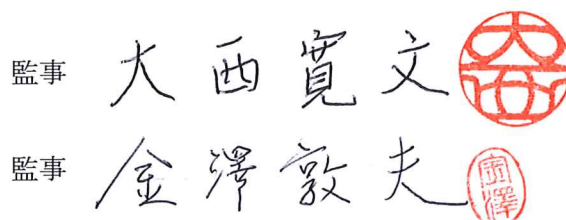 監事 大西寛文 大西
監事 金澤敦夫 金澤